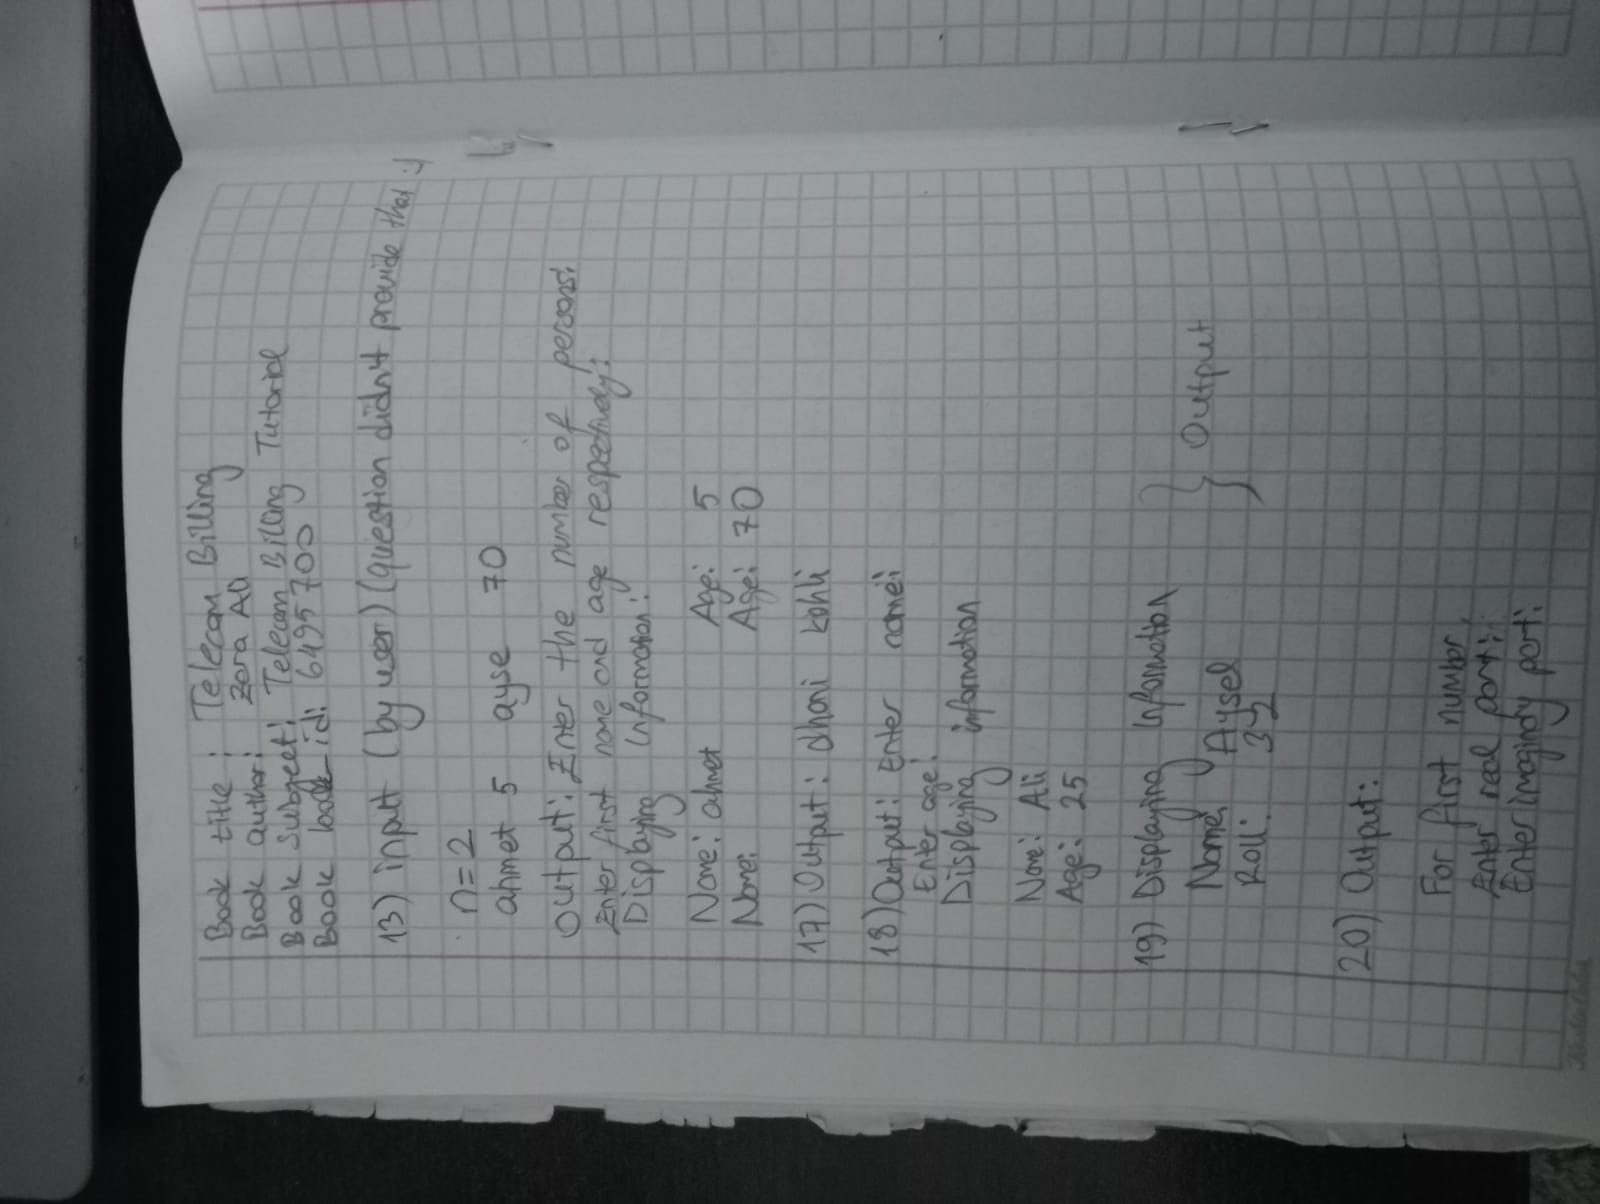 Book title : Telecom Billing
Book author : Zara Ali
Book subject : Telecom Billing Tutorial
Book id : 6495700
13) input (by user) (question didn't provide that :-)
n=2
ahmet 5 ayse 70
Output: Enter the number of persons:
Enter first name and age respectively:
Displaying Information:
Name: ahmet Age: 5
Name: Age: 70
17) Output: dhoni kohli
18) Output: Enter name:
Enter age:
Displaying information
Name: Ali
Age: 25
19) Displaying Information
Name: Aysel
Roll: 32
} Output
20) Output:
For first number,
Enter real part:
Enter imaginary part: